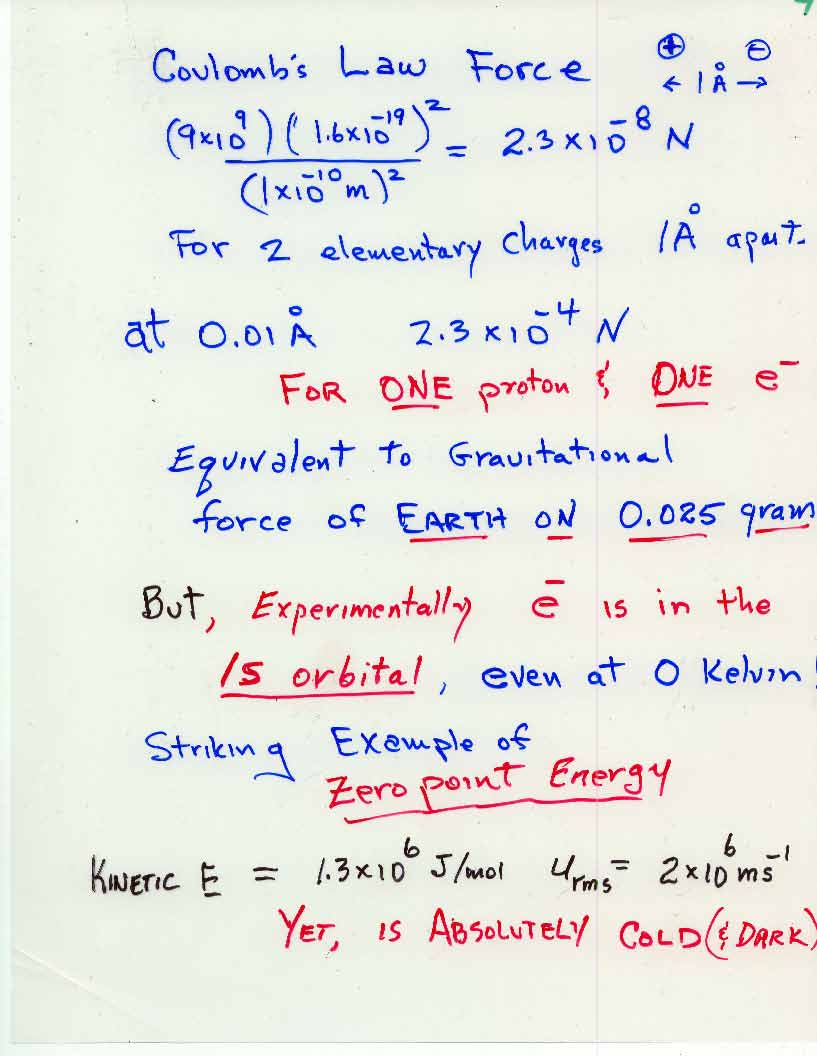 Coulomb's Law Force ⊕ ⊖
← 1 Å →
(9x10⁹) (1.6x10⁻¹⁹)² = 2.3 x 10⁻⁸ N
(1x10⁻¹⁰ m)²
For 2 elementary charges 1Å apart.
at 0.01 Å 2.3 x 10⁻⁴ N
FOR ONE proton & ONE e⁻
Equivalent to Gravitational
force of EARTH ON 0.025 gram
But, Experimentally e⁻ is in the
1s orbital, even at 0 Kelvin!
Striking Example of
Zero point Energy
KINETIC E = 1.3x10⁶ J/mol u_rms = 2x10⁶ ms⁻¹
YET, IS ABSOLUTELY COLD (& DARK)